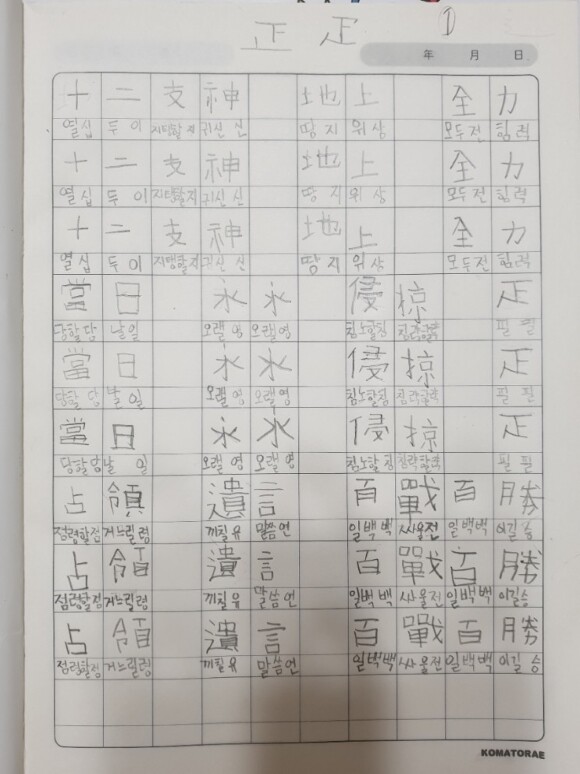 正 疋 ①
年 月 日
十 二 支 神 地 上 全 力
열십 두이 지탱할지 귀신신 땅지 위상 모두전 힘력
十 二 支 神 地 上 全 力
열십 두이 지탱할지 귀신신 땅지 위상 모두전 힘력
十 二 支 神 地 上 全 力
열십 두이 지탱할지 귀신신 땅지 위상 모두전 힘력
當 日 永 永 侵 掠 疋
당할당 날일 오랠영 오랠영 침노할침 필필
當 日 永 永 侵 掠 疋
당할당 날일 오랠영 오랠영 침노할침 필필
當 日 永 永 侵 掠 疋
당할당 날일 오랠영 오랠영 침노할침 필필
占 領 遺 言 百 戰 百 勝
점령할점 거느릴령 끼칠유 말씀언 일백백 싸울전 일백백 이길승
占 領 遺 言 百 戰 百 勝
점령할점 거느릴령 끼칠유 말씀언 일백백 싸울전 일백백 이길승
占 領 遺 言 百 戰 百 勝
점령할점 거느릴령 끼칠유 말씀언 일백백 싸울전 일백백 이길승
KOMATORAE